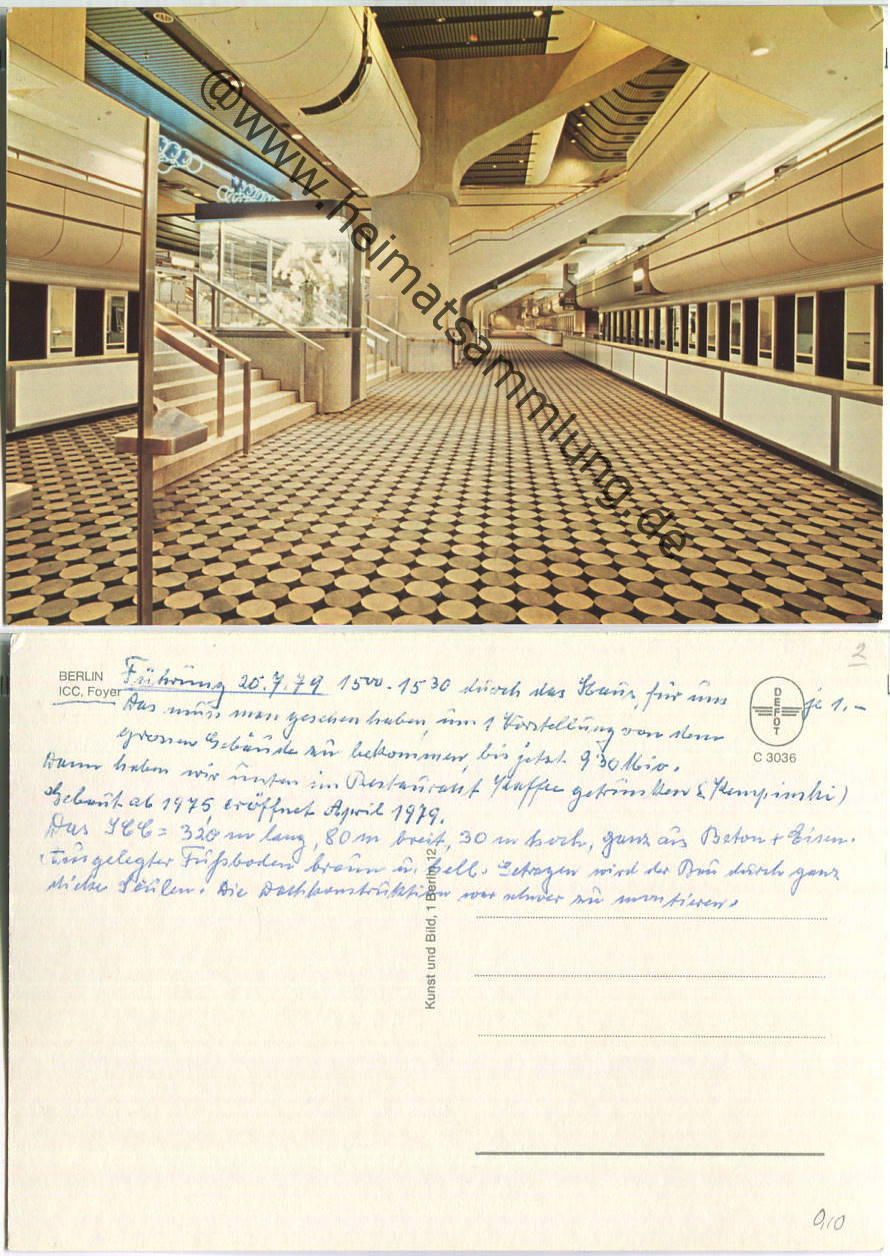 @www.heimatsammlung.de
2
BERLIN
ICC, Foyer
Führung 20.7.79 15⁰⁰-15³⁰ durch das Haus, für uns je 1.-
Das muss man gesehen haben, um 1 Vorstellung von dem
grossen Gebäude zu bekommen, bis jetzt 930 Mio.
Dann haben wir unten im Restaurant Kaffee getrunken (Kempinski)
Gebaut ab 1975, eröffnet April 1979.
Das ICC = 320 m lang, 80 m breit, 30 m hoch, ganz aus Beton + Eisen.
Ausgelegter Fußboden braun u. hell. Getragen wird der Bau durch ganz
dicke Säulen. Die Dachkonstruktion war schwer zu montieren.
DEFOT
C 3036
Kunst und Bild, 1 Berlin 12
0,10